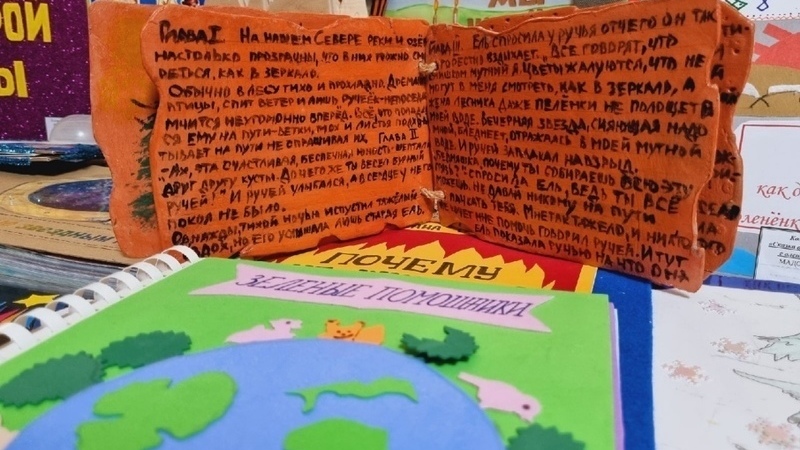 РОЙ
Ы
ГЛАВА I НА НАШЕМ СЕВЕРЕ РЕКИ И ОЗЁ
НАСТОЛЬКО ПРОЗРАЧНЫ, ЧТО В НИХ МОЖНО СМ
РЕТЬСЯ, КАК В ЗЕРКАЛО.
ОБЫЧНО В ЛЕСУ ТИХО И ПРОХЛАДНО. ДРЕМА
ПТИЦЫ, СПИТ ВЕТЕР И ЛИШЬ РУЧЕЁК-НЕПОСЕДА
МЧИТСЯ НЕУГОМОННО ВПЕРЁД. ВСЁ, ЧТО ПОПАДА
ЕМУ НА ПУТИ-ВЕТКИ, МОХ И ЛИСТЬЯ ПОДХВА
ТЫВАЕТ НА ПУТИ НЕ СПРАШИВАЯ ИХ. ГЛАВА II
"АХ, ЭТА СЧАСТЛИВАЯ, БЕСПЕЧНА, ЮНОСТЬ-ШЕПТАЛИ
ДРУГ ДРУГУ КУСТЫ. ДО ЧЕГО ЖЕ ТЫ ВЕСЕЛ БУРНЫЙ
РУЧЕЙ!" И РУЧЕЙ УЛЫБАЛСЯ, А В СЕРДЦЕ У НЕГО
ПОКОЯ НЕ БЫЛО.
ОДНАЖДЫ, ТИХОЙ НОЧЬЮ ИСПУСТИЛ ТЯЖЁЛЫЙ
ВЗДОХ, НО ЕГО УСЛЫШАЛА ЛИШЬ СТАРАЯ ЕЛЬ.
ГЛАВА III. ЕЛЬ СПРОСИЛА У РУЧЬЯ ОТЧЕГО ОН ТАК
ГОРЕСТНО ВЗДЫХАЕТ. "ВСЕ ГОВОРЯТ, ЧТО
СЛИШКОМ МУТНЫЙ Я. ЦВЕТЫ ЖАЛУЮТСЯ, ЧТО НЕ
МОГУТ В МЕНЯ СМОТРЕТЬ, КАК В ЗЕРКАЛО, А
ЖЕНА ЛЕСНИКА ДАЖЕ ПЕЛЁНКИ НЕ ПОЛОЩЕТ В
МОЕЙ ВОДЕ. ВЕЧЕРНЯЯ ЗВЕЗДА, СИЯЮЩАЯ НАДО
МНОЙ, БЛЕДНЕЕТ, ОТРАЖАЯСЬ В МОЕЙ МУТНОЙ
ВОДЕ. И РУЧЕЙ ЗАПЛАКАЛ НАВЗРЫД.
"БЕДНЯЖКА, ПОЧЕМУ ТЫ СОБИРАЕШЬ ВСЮ ЭТУ
СПРОСИЛА ЕЛЬ, ВЕДЬ ТЫ ВСЁ
НЕ ДАВАЙ НИКОМУ НА ПУТИ
СЕБЯ. МНЕ ТАК ТЯЖЕЛО, И НИКТО
ХОЧЕТ МНЕ ПОМОЧЬ ГОВОРИЛ РУЧЕЙ. И ТУТ
ЕЛЬ ПОКАЗАЛА РУЧЬЮ НА ЧТО ОНА
ПОЧЕМУ
ЗЕЛЕНЫЕ ПОМОШНИКИ
как о